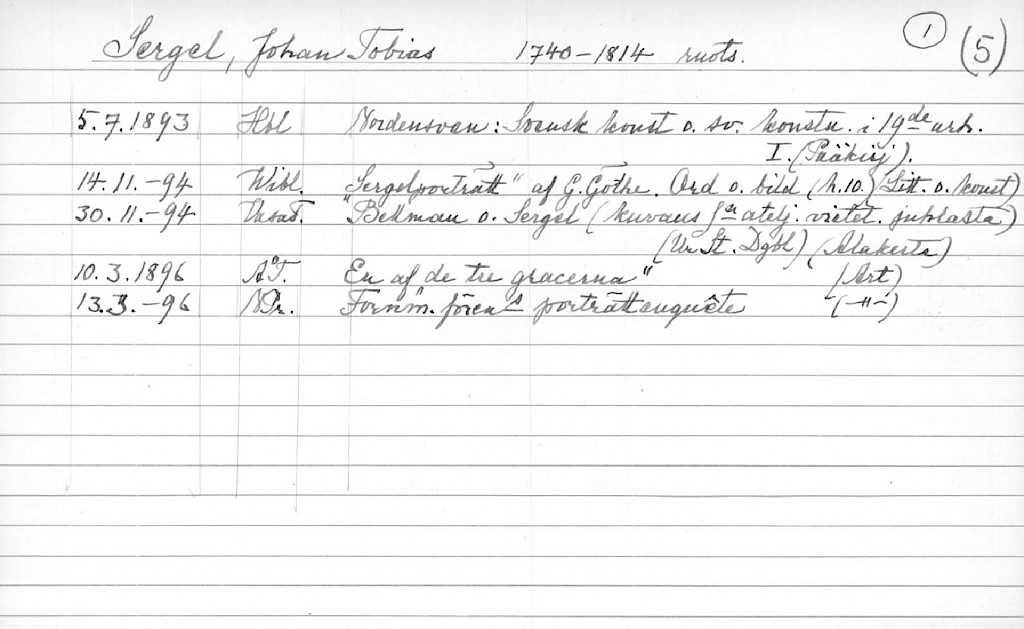 Sergel, Johan Tobias 1740-1814 ruots. 1 (5)
5.7.1893 Hbl Nordensvan: Svensk konst o. sv. konstn. i 19de arh.
I. (Pääkirj).
14.11.-94 Wibl. "Sergelporträtt" af G. Göthe. Ord o. bild (h.10.) Litt. o. konst)
30.11.-94 "Bellman o. Sergel (kuvaus atelj. vietet. juhlasta)
(Ur St. Dgbl) (Alakerta)
10.3.1896 ÅT. En af de tre gracerna" (Art)
13.3.-96 NPr. Fornm. fören:s porträttenquête (-"-)